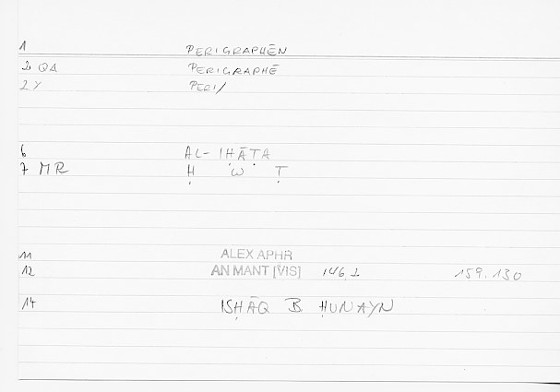 1 PERIGRAPHĒN
2 QA PERIGRAPHĒ
2 Y PERI/
6 AL-IḤĀṬA
7 MR Ḥ W Ṭ
11 ALEX APHR
12 AN MANT [VIS] 146,1 159.130
14 ISḤĀQ B ḤUNAYN